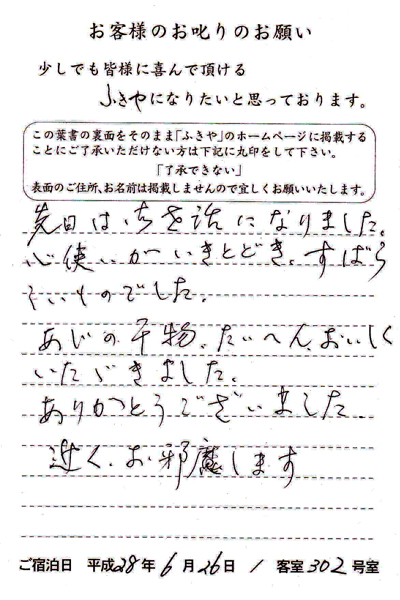 お客様のお叱りのお願い
少しでも皆様に喜んで頂ける
ふきやになりたいと思っております。
この葉書の裏面をそのまま「ふきや」のホームページに掲載する
ことにご了承いただけない方は下記に丸印をして下さい。
「了承できない」
表面のご住所、お名前は掲載しませんので宜しくお願いいたします。
先日はお世話になりました。
心使いがいきとどき、すばら
しいものでした。
あじの干物、たいへん、おいしく
いただきました。
ありがとうございました。
近く、お邪魔します
ご宿泊日 平成28年6月26日 / 客室302号室